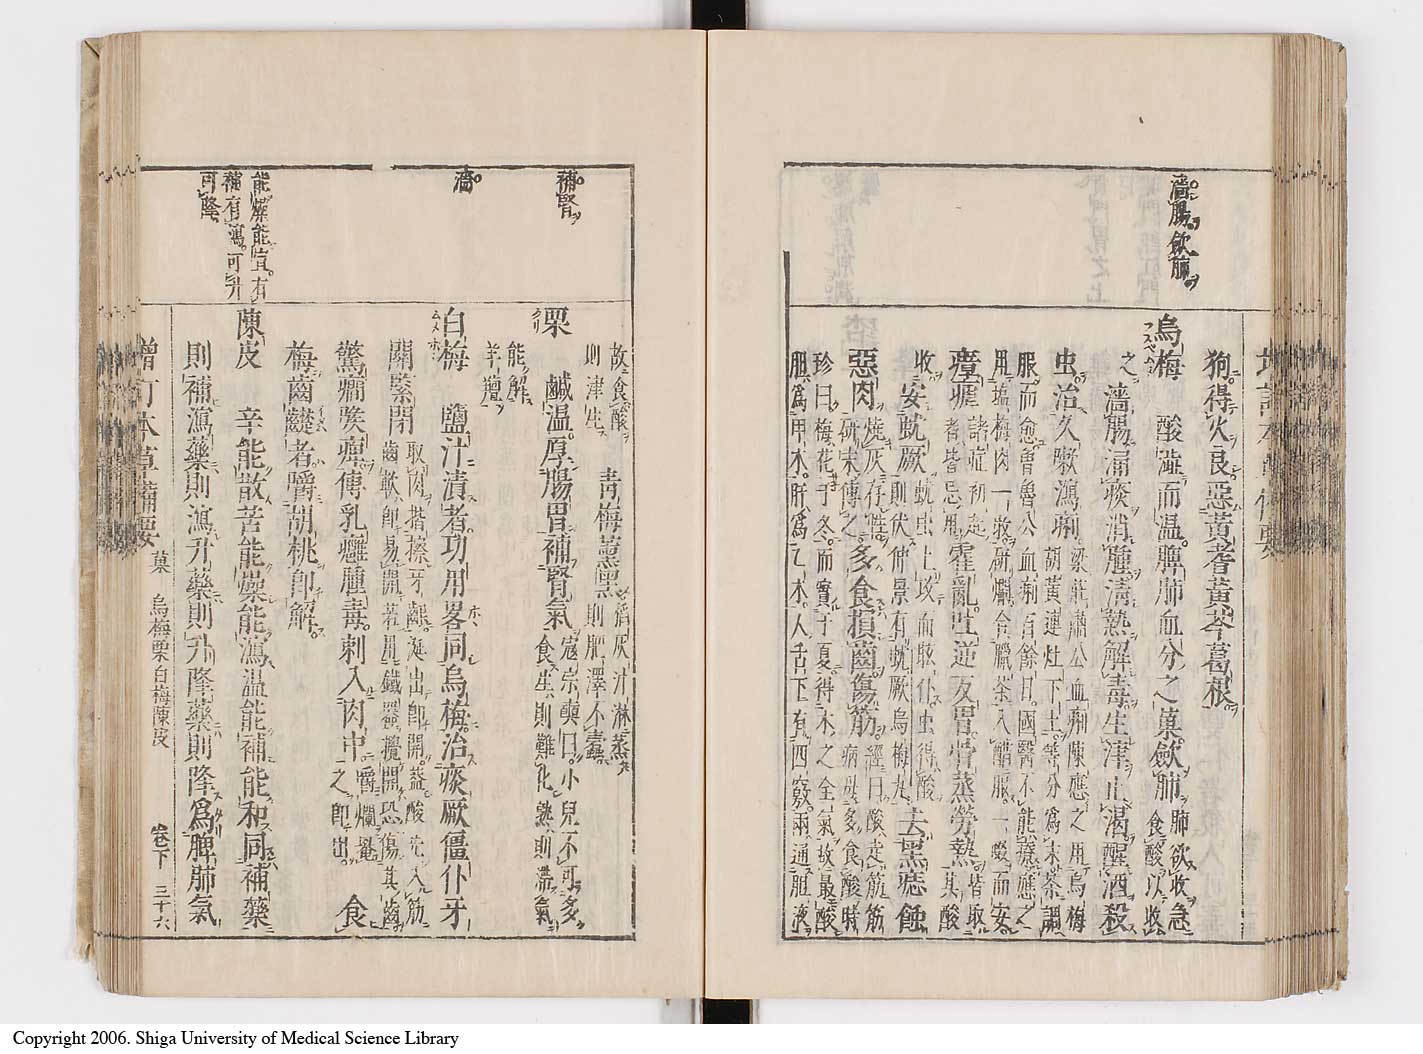 濇腸歛肺
狗。得火良惡黃耆黃芩葛根
烏梅 酸澁而温。脾肺血分之菓。歛肺 肺欲收急
食酸以收
之 濇腸涌痰消腫清熱解毒生津止渴醒酒殺
虫。治久嗽瀉痢。梁莊肅公血痢陳應之用烏梅
胡黃連灶下土。等分爲末。茶調
服。而愈曾魯公血痢百餘日。國醫不能療應之
用塩梅肉一枚研爛合臘茶入醋服。一啜而安
瘴瘧 諸症初起
者皆忌用 霍亂。吐逆反胃骨蒸勞熱。皆取
其酸
收 安蚘厥 蚘虫上攻而眩仆虫得酸
則伏仲景有蚘厥烏梅丸 去黑痣蝕
惡肉 燒灰存性。
研末傅之。 多食損齒傷筋。經曰。酸走筋筋
病毋多食酸時
珍曰。梅花于冬。而實于夏。得木之全氣故最酸
胆爲甲木。肝爲乙木。人舌下有四竅。兩通胆液
補腎
濇。
能燥能宣。有
補有瀉。可升
可降
故食酸
則津生 青梅薰黑 稻灰汁淋蒸
則肥澤不蠹
栗 鹹温。厚腸胃補腎氣 寇宗奭曰。小兒不可多
食。生則難化。熟則滯氣
能解
羊羶
白梅 鹽汁漬者功用畧同烏梅。治痰厥僵仆牙
關緊閉 取肉揩擦牙齦。涎出即開。葢酸先入筋
齒軟即易開。若用鐵器攪開恐傷其齒
驚癇喉痺傅乳癰腫毒。刺入肉中 嚼爛罨
之即出。 食
梅齒齼者。嚼胡桃即解。
陳皮 辛能散苦能燥能瀉温能補能和同補藥
則補瀉藥則瀉升藥則升降藥則降爲脾肺氣
增訂本草備要 菓 烏梅栗白梅陳皮 卷下 三十六
Copyright 2006. Shiga University of Medical Science Library